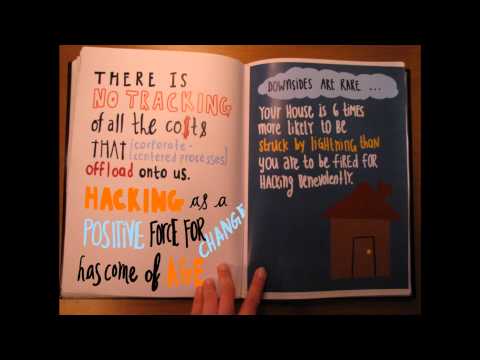 THERE IS
NO TRACKING
of all the co$ts
THAT (corporate-
centered processes)
offload onto us.
HACKING as a
POSITIVE FORCE FOR
CHANGE
has come of AGE
DOWNSIDES ARE RARE ...
YOUR HOUSE IS 6 TIMES
MORE LIKELY TO BE
STRUCK BY LIGHTNING THAN
YOU ARE TO BE FIRED FOR
HACKING BENEVOLENTLY.